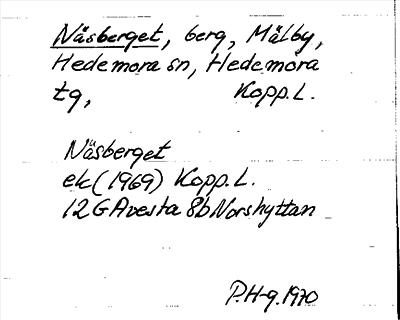 Näsberget, berg, Målby,
Hedemora sn, Hedemora
tg, Kopp. L.
Näsberget
ek (1969) Kopp. L.
12 G Avesta 8b Norshyttan
P.H-g. 1970